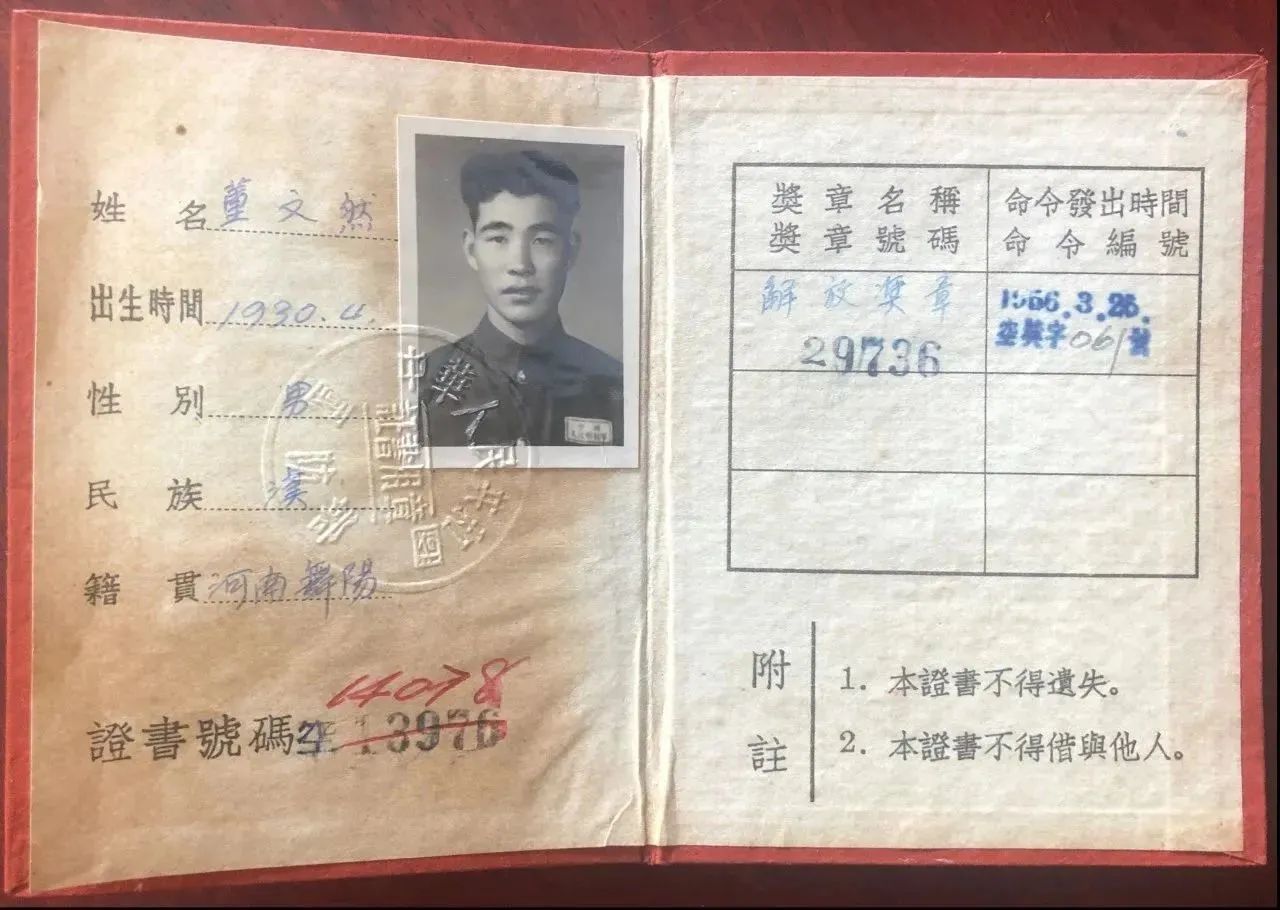 姓 名 董文然
出生時間 1930.4.
性 別 男
民 族 漢
籍 貫 河南舞陽
14078
證書號碼 空 13976
中華人民共和國
國防部
奬章名稱
奬章號碼
命令發出時間
命令編號
解放奬章
29736
1956.3.26.
空奬字061號
附註
1. 本證書不得遺失。
2. 本證書不得借與他人。